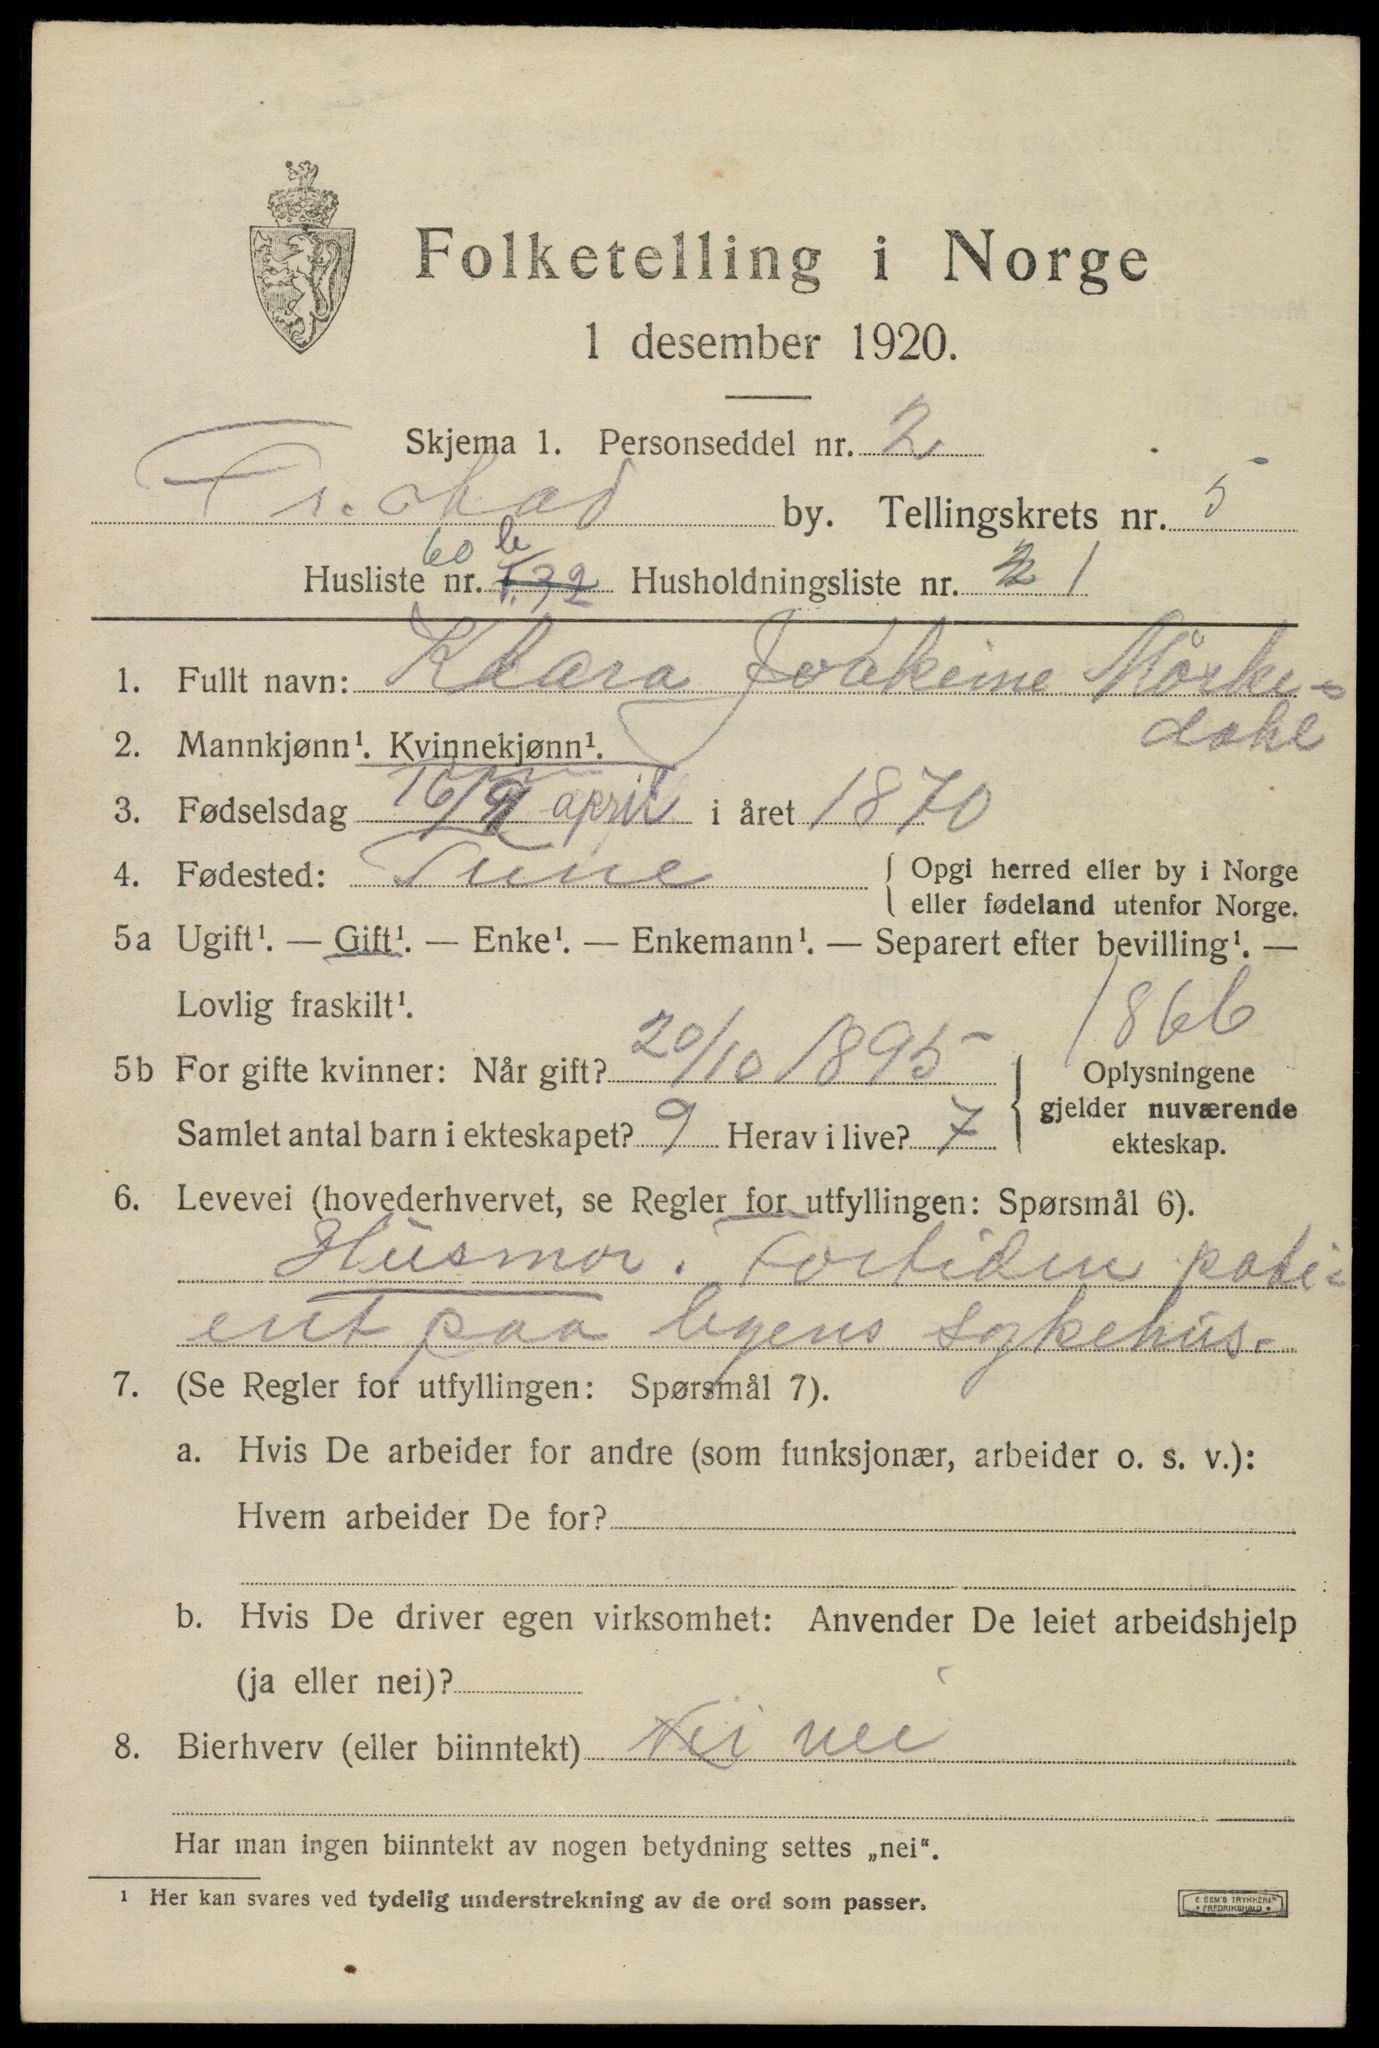 Folketelling i Norge
1 desember 1920.
Skjema 1. Personseddel nr. 2
Fr.stad by. Tellingskrets nr. 5
60 b
Husliste nr. Husholdningsliste nr. 2 1
1. Fullt navn: Klara Joakime Mørke-
dahl
2. Mannkjønn¹. Kvinnekjønn¹.
3. Fødselsdag 16/4 april i året 1870
4. Fødested: Tune { Opgi herred eller by i Norge
eller fødeland utenfor Norge.
5a Ugift¹. — Gift¹. — Enke¹. — Enkemann¹. — Separert efter bevilling¹. —
Lovlig fraskilt¹. 1866
5b For gifte kvinner: Når gift? 20/10 1895 { Oplysningene
gjelder nuværende
ekteskap.
Samlet antal barn i ekteskapet? 9 Herav i live? 7
6. Levevei (hovederhvervet, se Regler for utfyllingen: Spørsmål 6).
Husmor. Fortiden pati-
ent paa byens sykehus.
7. (Se Regler for utfyllingen: Spørsmål 7).
a. Hvis De arbeider for andre (som funksjonær, arbeider o. s. v.):
Hvem arbeider De for?
b. Hvis De driver egen virksomhet: Anvender De leiet arbeidshjelp
(ja eller nei)?
8. Bierhverv (eller biinntekt) Nei nei
Har man ingen biinntekt av nogen betydning settes „nei“.
¹ Her kan svares ved tydelig understrekning av de ord som passer.
E. SEM'S TRYKKERI
* FREDRIKSHALD *